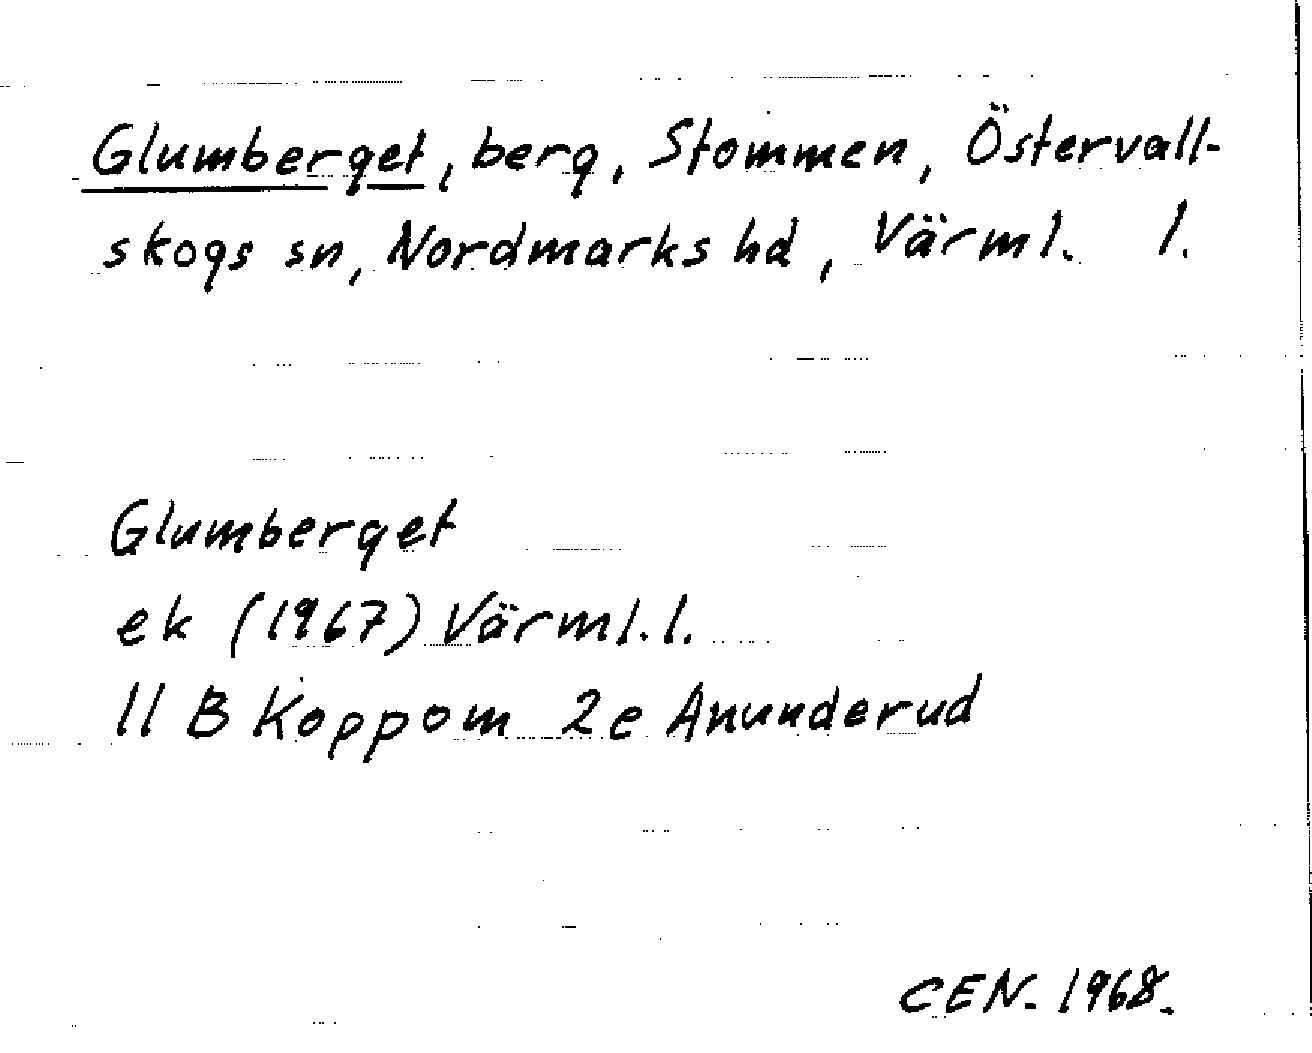 Glumberget, berg, Stommen, Östervall-
skogs sn, Nordmarks hd, Värml. l.
Glumberget
ek (1967) Värml. l.
11 B Koppom 2e Anunderud
CEN. 1968.